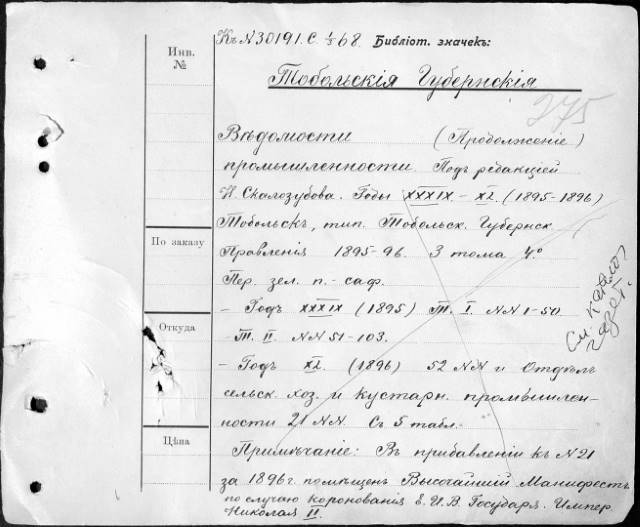 Къ N 30191. С. 1/5 68. Библіот. значекъ:
Инв.
№
Тобольскія Губернскія
275
Вѣдомости (Продолженіе)
промышленности. Подъ редакціей
Н. Скалозубова. Годы XXXIX - XL. (1895-1896)
Тобольскъ, тип. Тобольск. Губернск.
По заказу
Правленія 1895-96. 3 тома 4°
Пер. зел. п.- саф.
- Годъ XXXIX (1895) Т. I. NN 1-50.
Откуда
- Т. II. NN 51-103.
- Годъ XL. (1896) 52 NN и Отдѣлъ
сельск. хоз. и кустарн. промышлен-
ности 21 NN. Съ 5 табл.
Цѣна
Примѣчаніе: Въ прибавленіи къ N 21
за 1896 г. помѣщенъ Высочайшій Манифестъ
по случаю коронованія Е. И. В. Государя. Импер.
Николая II.
См. каталог
газет.